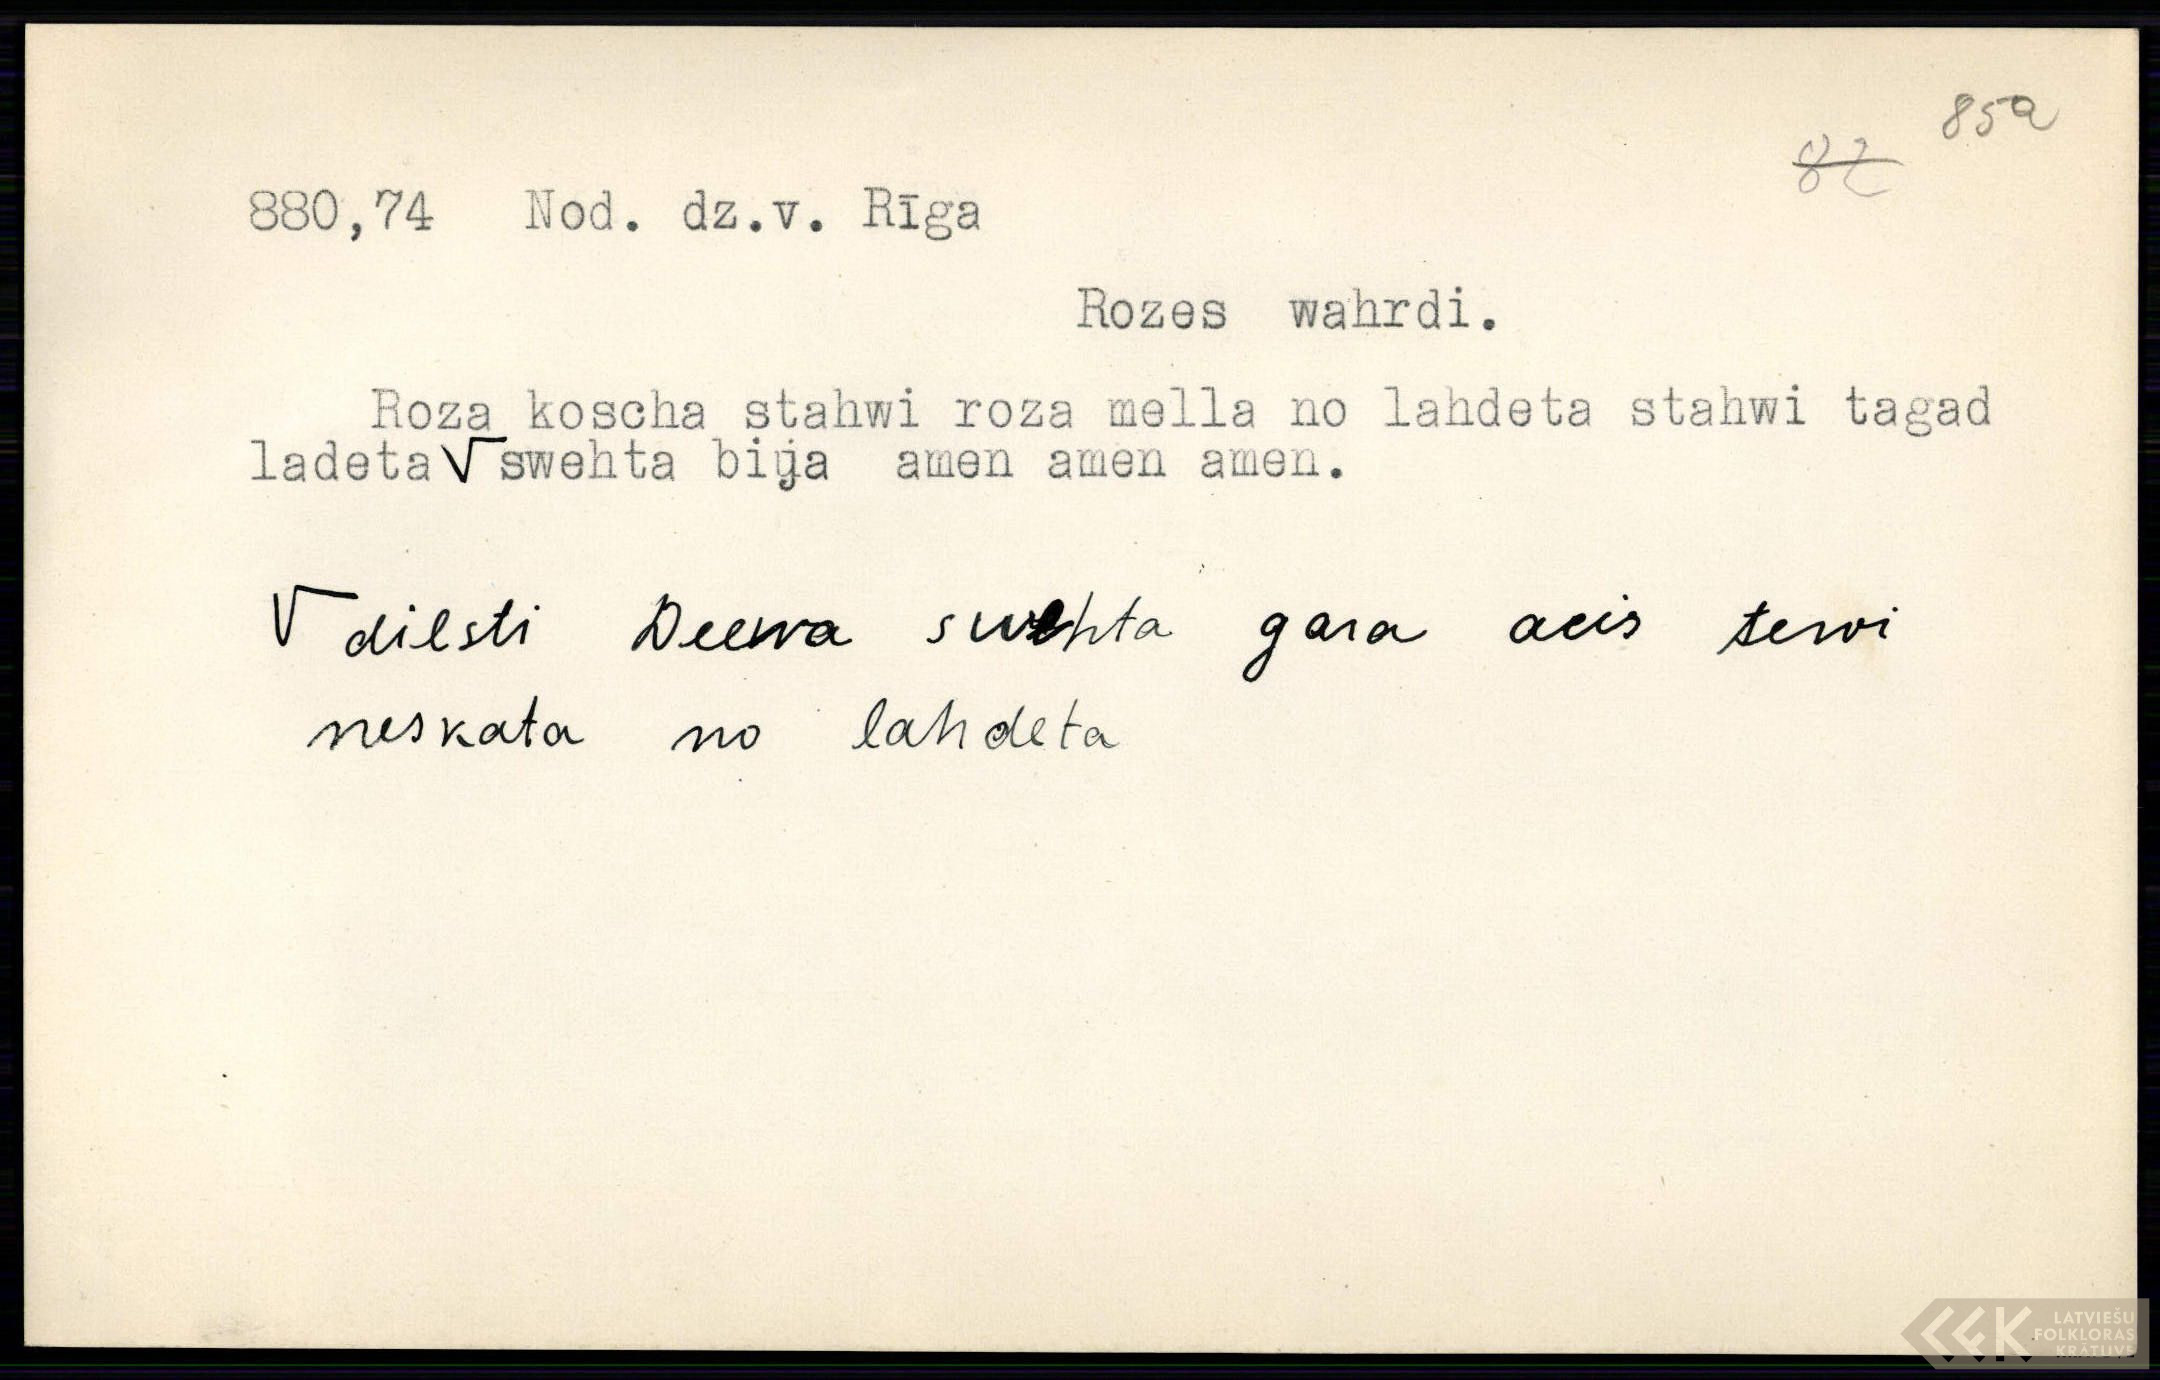 85a
82
880,74 Nod. dz.v. Rīga
Rozes wahrdi.
Roza koscha stahwi roza mella no lahdeta stahwi tagad
ladeta √ swehta bija amen amen amen.
√ dilsti Deewa swehta gara acis tewi
neskata no lahdeta
LATVIEŠU
FOLKLORAS
KRĀTUVE